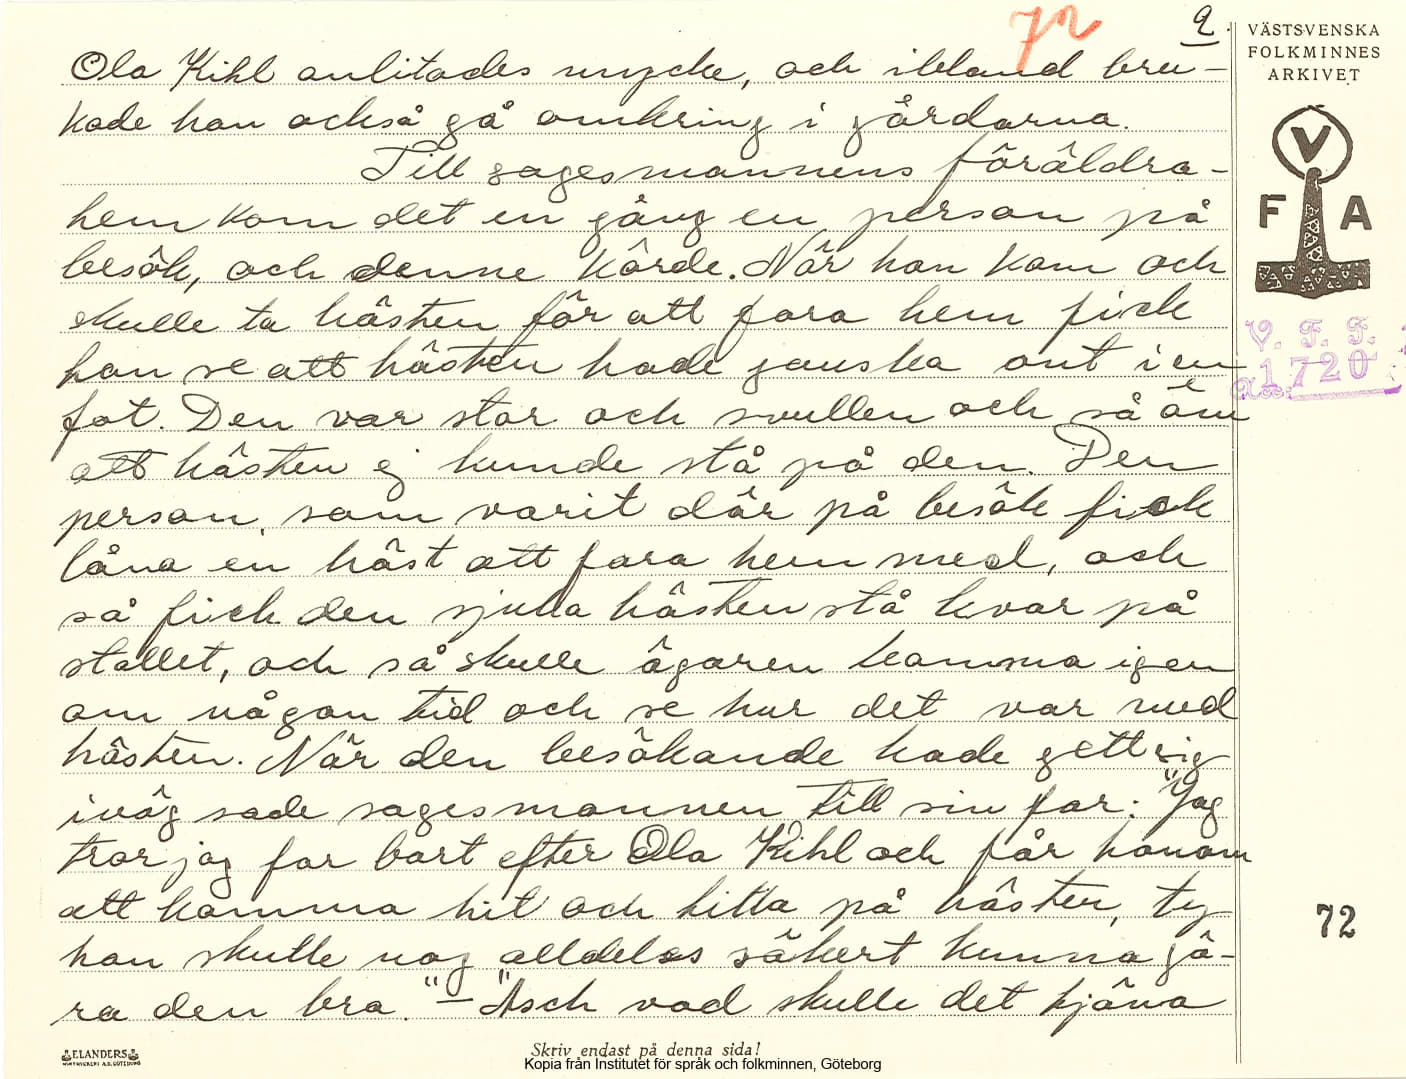 72
9.
VÄSTSVENSKA
FOLKMINNES
ARKIVET
V
F A
V. F. F.
1720
Ola Kihl anlitades mycke, och ibland bru-
kade han också gå omkring i gårdarna.
Till sagesmannens föräldra-
hem kom det en gång en person på
besök, och denne körde. När han kom och
skulle ta hästen för att fara hem fick
han se att hästen hade ganska ont i en
fot. Den var stor och svullen och så öm
att hästen ej kunde stå på den. Den
person, som varit där på besök fick
låna en häst att fara hem med, och
så fick den sjuka hästen stå kvar på
stallet, och så skulle ägaren komma igen
om någon tid och se hur det var med
hästen. När den besökande hade gett sig
iväg sade sagesmannen till sin far: "Jag
tror jag far bort efter Ola Kihl och får honom
att komma hit och titta på hästen, ty
han skulle nog alldeles säkert kunna gö-
ra den bra." – "Asch vad skulle det tjäna
72
ELANDERS
Skriv endast på denna sida!
Kopia från Institutet för språk och folkminnen, Göteborg